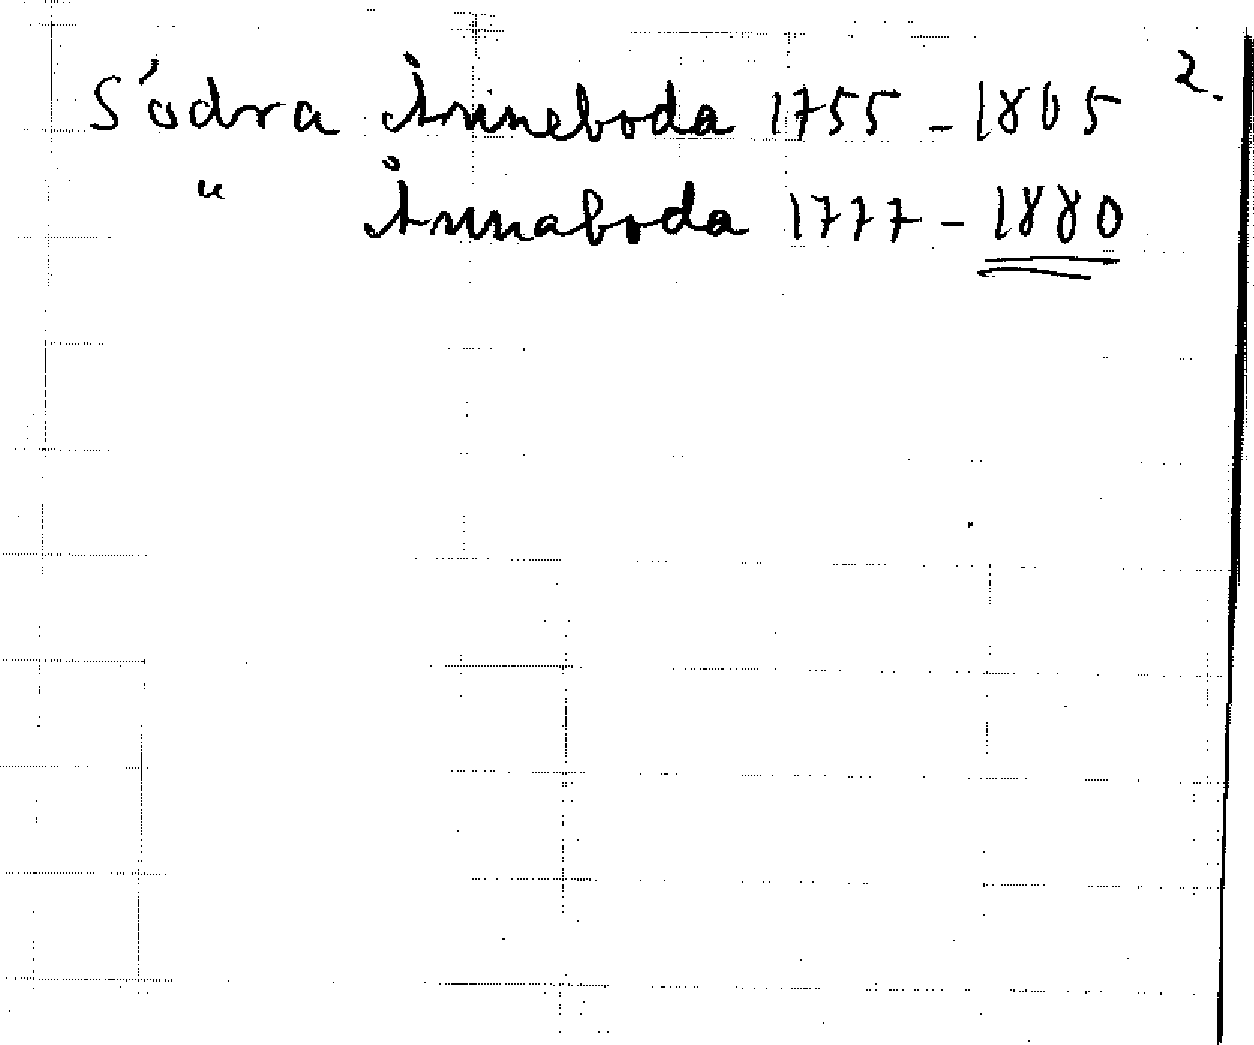 2.
Södra Ånneboda 1755 - 1805
" Ånnaboda 1777 - 1880